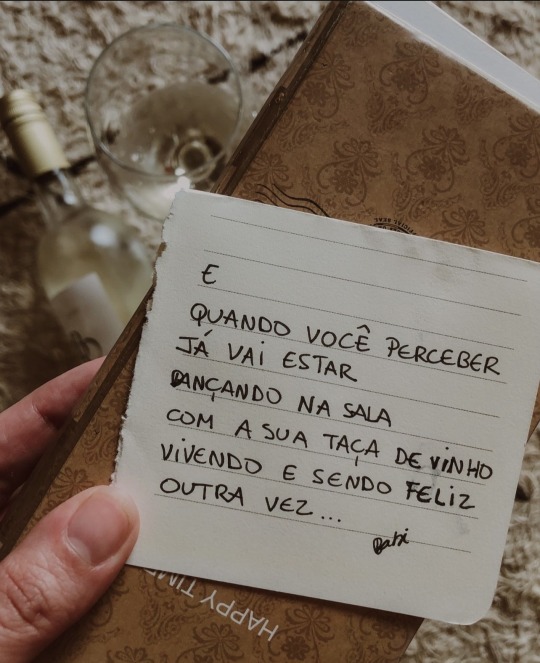 E
QUANDO VOCÊ PERCEBER
JÁ VAI ESTAR
DANÇANDO NA SALA
COM A SUA TAÇA DE VINHO
VIVENDO E SENDO FELIZ
OUTRA VEZ...
HAPPY TIME